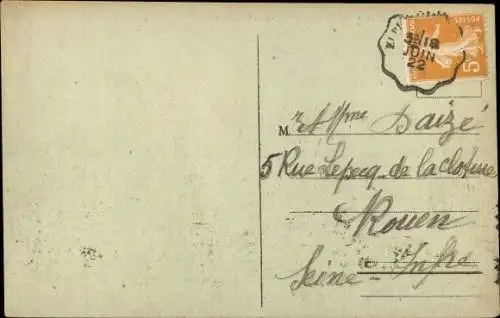 3E/18
JUIN
22
5
M r et Mme Daizé
5 Rue Lepecq-de la cloture
Rouen
Seine-Infre